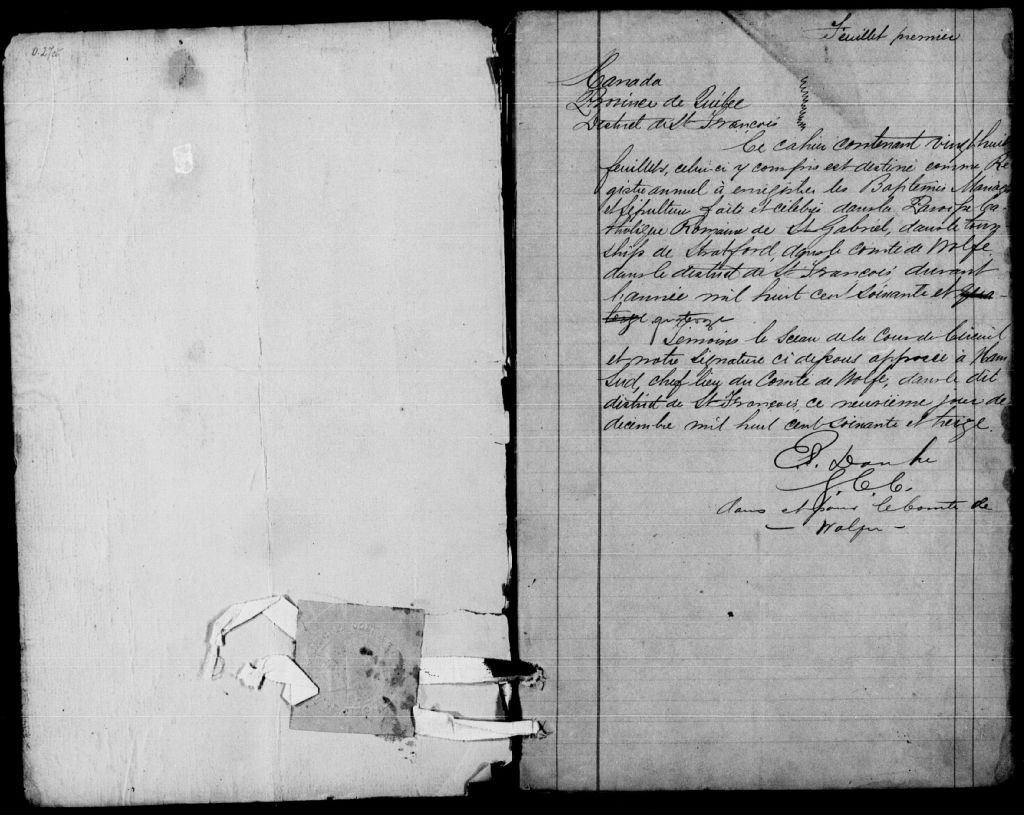 Feuillet premier
Canada
Province de Québec
District de St François
Ce cahier contenant vingt huit
feuillets, celui-ci y compris est destiné comme Re
gistre annuel à enregistrer les Baptêmes Mariages
et Sépulture faits et célébrés dans la Paroisse Ca-
tholique Romaine de St Gabriel, dans le town-
ship de Stratford, dans le comté de Wolfe
dans le district de St François durant
l'année mil huit cent soixante et
quatorze
Témoins le Sceau de la Cour de Circuit
et notre signature ci dessous apposée à Ham
Sud, chef lieu du Comté de Wolfe, dans le dit
district de St François, ce neuvième jour de
décembre mil huit cent soixante et treize.
G. C. C.
dans et pour le Comté de
- Wolfe -